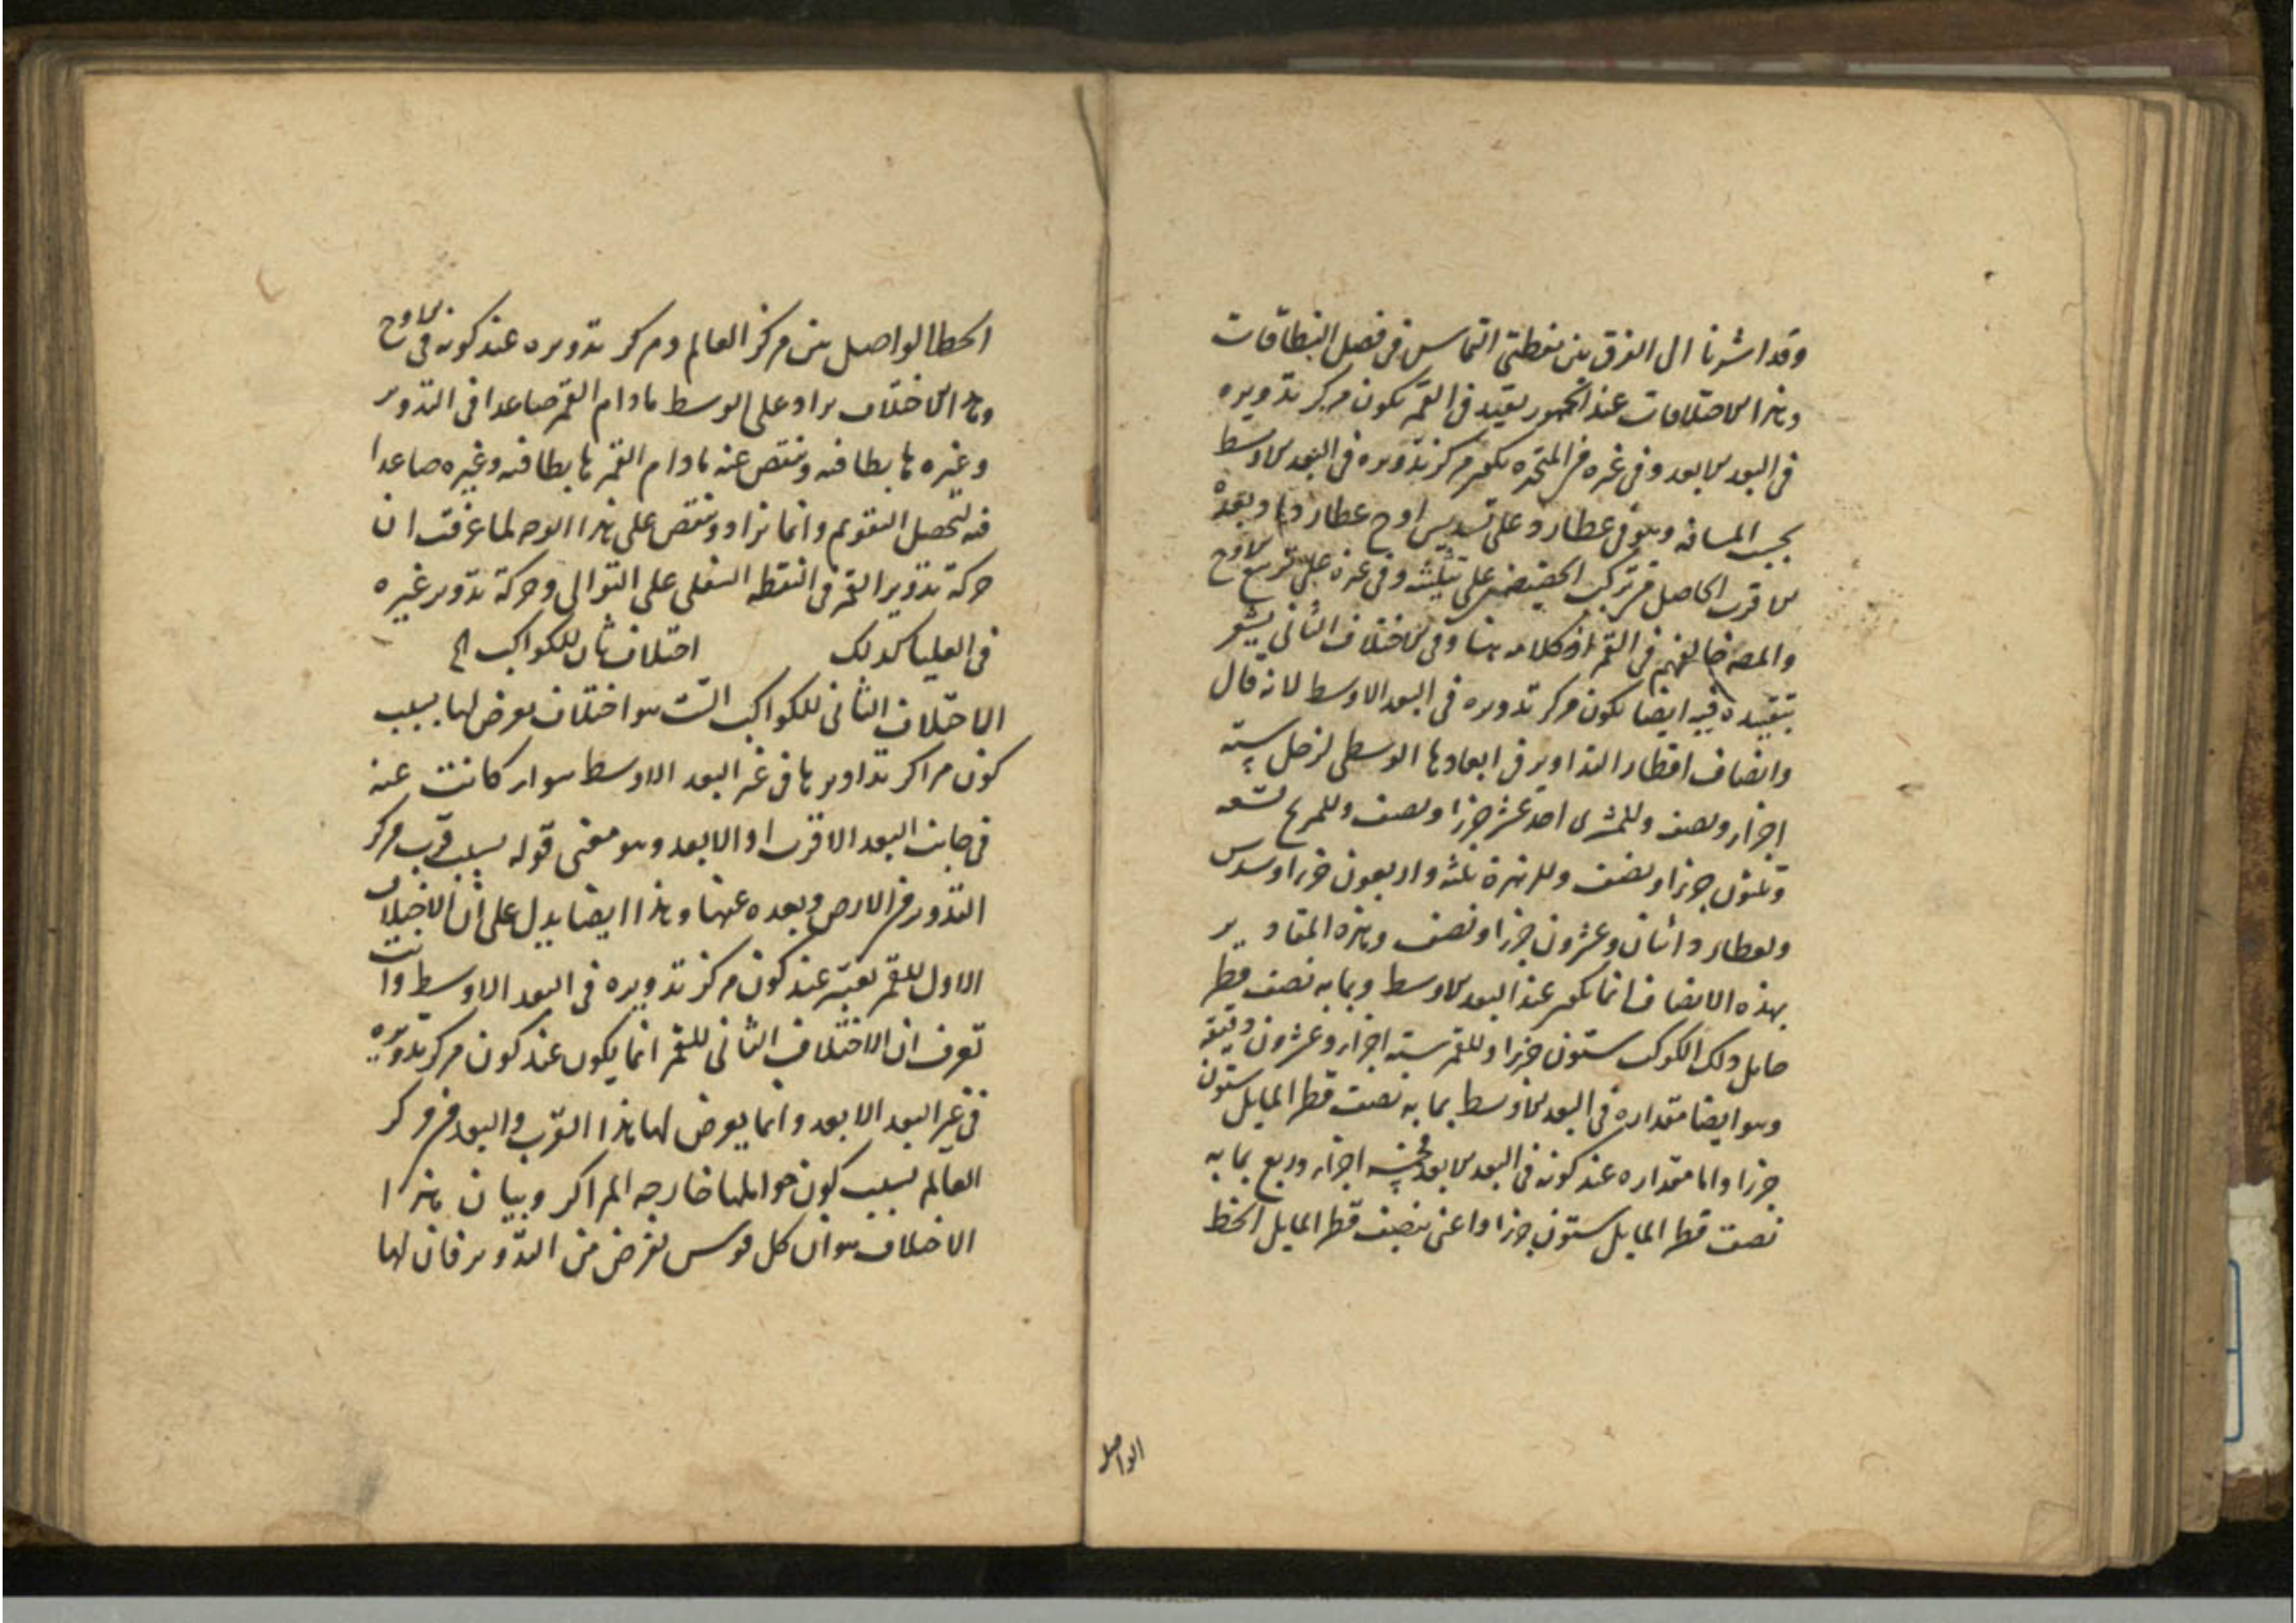 وقد اشرنا الى الفرق بين نقطتى التماس فى فصل النطاقات
وهذا الاختلافات عند الجمهور يقيد فى القمر بكون مركز تدويره
فى البعد الابعد وفى غيره من المتحيرة بكون مركز تدويره فى البعد الاوسط
بحسب المسافة وهو فى عطارد على تسديس اوج عطارد وبعده
الاقرب الحاصل من تركب الحضيضين على تثليثه وفى غيره على تربيع الاوج
والمصه خالفهم فى القمر اذ كلامه هنا وفى الاختلاف الثانى يشعر
بتقييده فيه ايضا بكون مركز تدويره فى البعد الاوسط لانه قال
وانصاف اقطار التداوير فى ابعادها الوسطى لزحل ستة
اجزاء ونصف وللمشترى احد عشر جزءا ونصف وللمريخ تسعة
وثلثون جزءا ونصف وللزهرة ثلثة واربعون جزءا وسدس
ولعطارد اثنان وعشرون جزءا ونصف وهذه المقادير
بهذه الانصاف انما يكون عند البعد الاوسط وبما به نصف قطر
حامل ذلك الكوكب ستون جزءا وللقمر ستة اجزاء وعشرون دقيقة
وهو ايضا مقداره فى البعد الاوسط بما به نصف قطر المايل ستون
جزءا واما مقداره عند كونه فى البعد الابعد فخمسة اجزاء وربع بما به
نصف قطر المايل ستون جزءا واعنى بنصف قطر المايل الخط
الواصل
الخط الواصل بين مركز العالم ومركز تدويره عند كونه فى الاوج
وهذا الاختلاف يزاد على الوسط مادام القمر صاعدا فى التدوير
وغيره هابطا فيه وينقص عنه مادام القمر هابطا فيه وغيره صاعدا
فيه ليحصل التقويم وانما يزاد وينقص على هذا الوجه لما عرفت ان
حركة تدوير القمر فى النقطة السفلى على التوالى وحركة تدوير غيره
فى العليا كذلك اختلاف ثان للكواكب الخ
الاختلاف الثانى للكواكب الست هو اختلاف يعرض لها بسبب
كون مراكز تداويرها فى غير البعد الاوسط سواء كانت عنه
فى جانب البعد الاقرب او الابعد وهو معنى قوله بسبب قرب مركز
التدوير من الارض وبعده عنها وهذا ايضا يدل على ان الاختلاف
الاول للقمر يعتبر عند كون مركز تدويره فى البعد الاوسط وانت
تعرف ان الاختلاف الثانى للقمر انما يكون عند كون مركز تدويره
فى غير البعد الابعد وانما يعرض لها هذا القرب والبعد من مركز
العالم بسبب كون حواملها خارجه المراكز وبيان هذا
الاختلاف هو ان كل قوس تفرض من التدوير فان لها